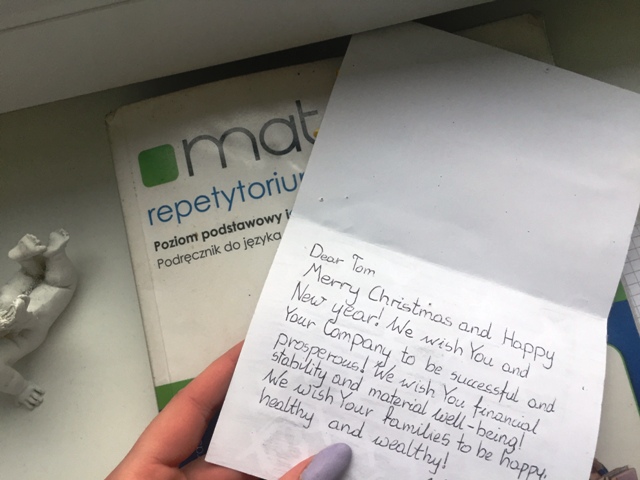 mat
repetytoriu
Poziom podstawowy i
Podręcznik do języka
Dear Tom
Merry Christmas and Happy
New year! We wish You and
Your Company to be successful and
prosperous! We wish You financial
stability and material well-being!
We wish Your families to be happy,
healthy and wealthy!